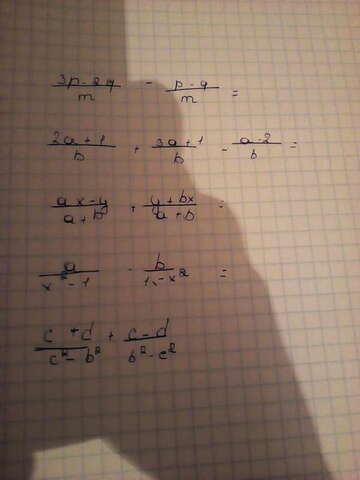 (3p-2q)/m - (p-q)/m =
(2a+1)/b + (3a+1)/b - (a-2)/b =
(ax-y)/(a+b) + (y+bx)/(a+b) =
a/(x²-1) - b/(1x-x2) =
(c+d)/(c²-b²) + (c-d)/(b²-c²)